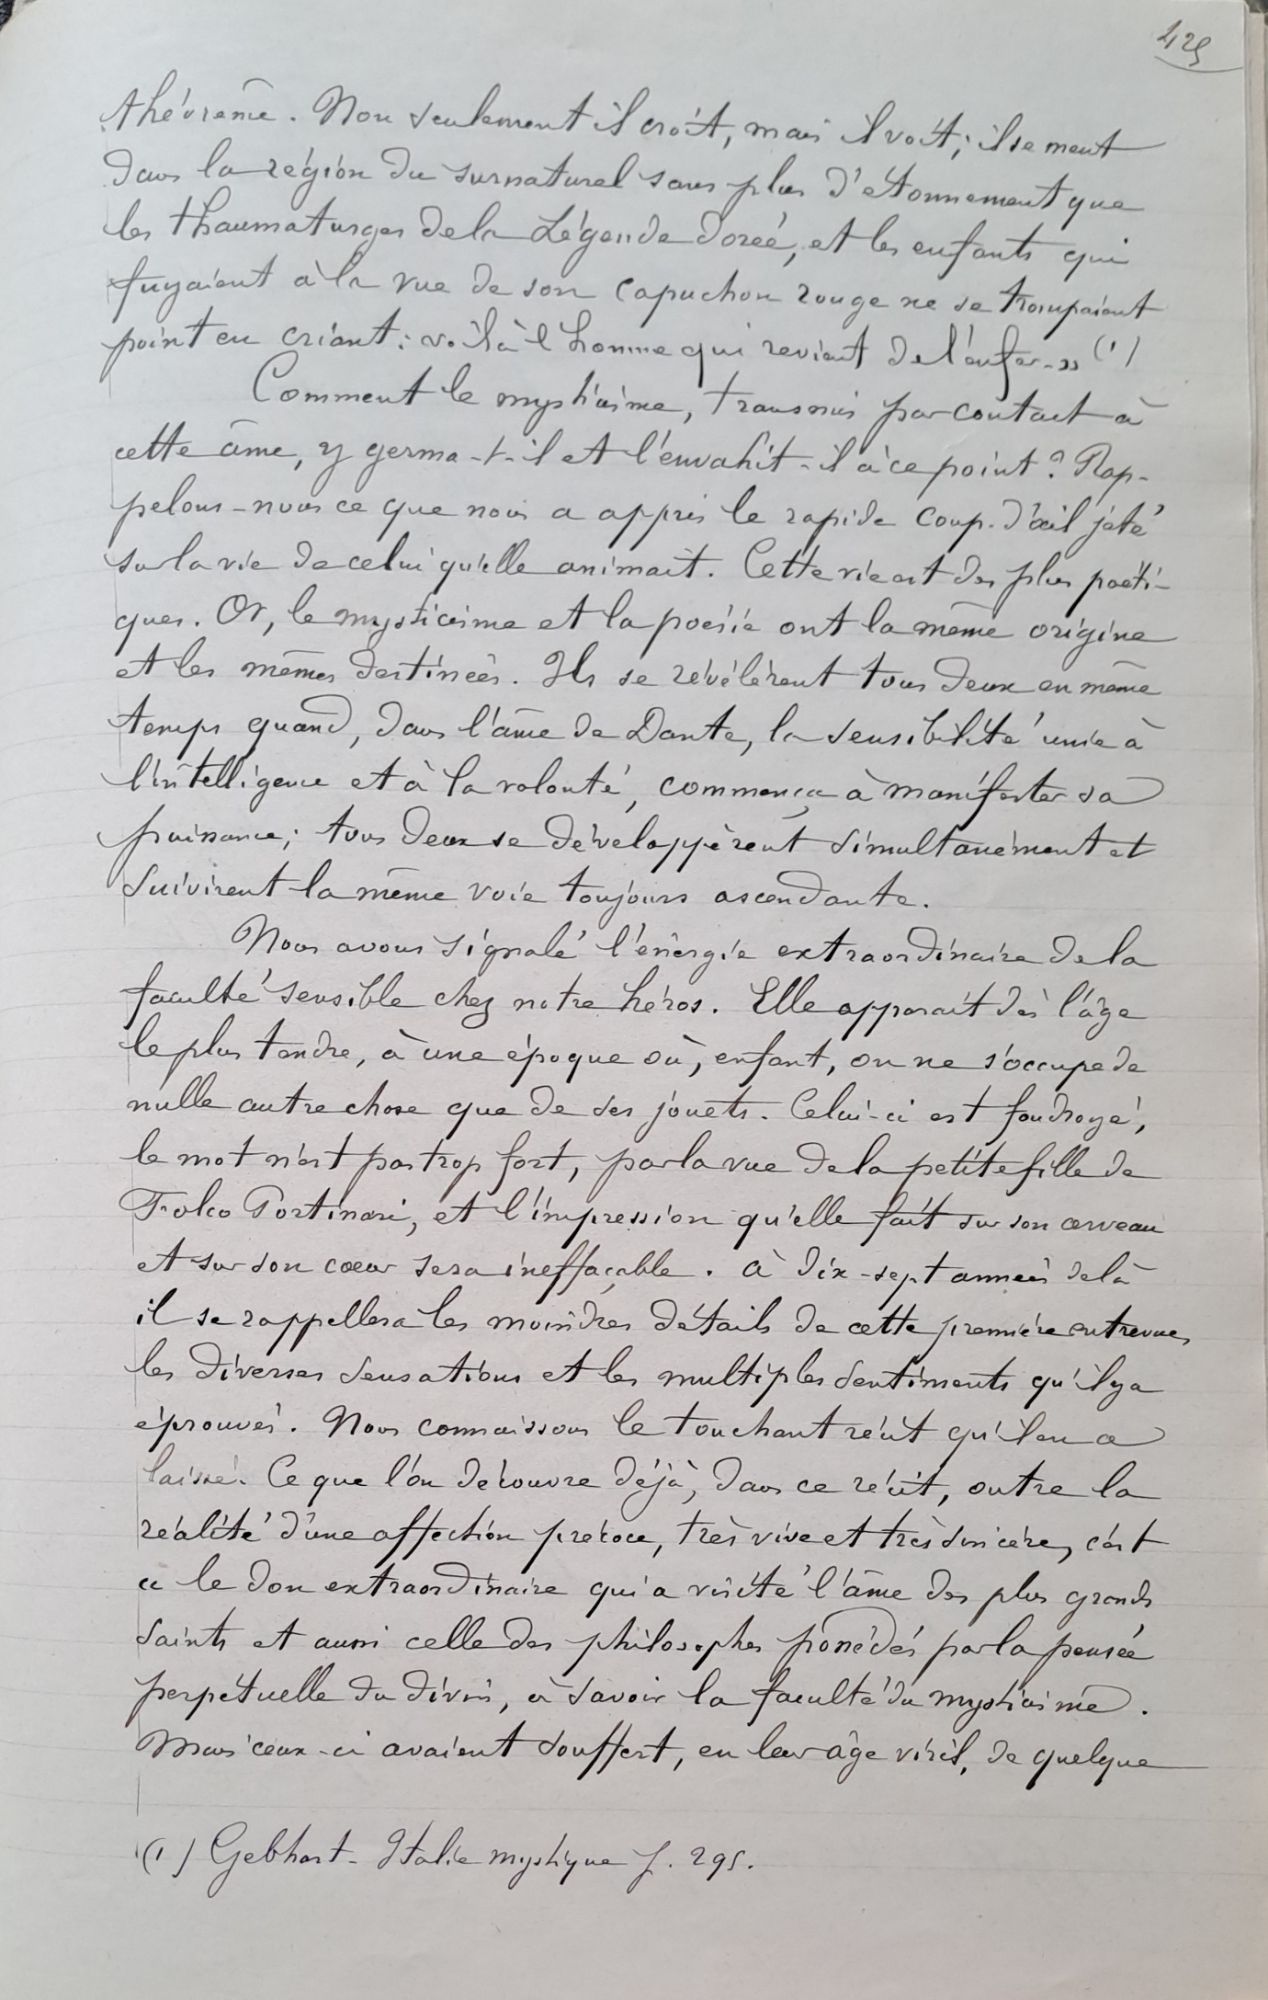 425
théorème. Non seulement il croit, mais il voit; il se meut
dans la région du surnaturel sans plus d'étonnement que
les thaumaturges de la Légende dorée, et les enfants qui
fuyaient à la vue de son capuchon rouge ne se trompaient
point en criant: voilà l'homme qui revient de l'enfer. » (1)
Comment le mysticisme, transmis par contact à
cette âme, y germa-t-il et l'envahit-il à ce point? Rap-
pelons-nous ce que nous a appris le rapide coup d'œil jeté
sur la vie de celui qu'elle animait. Cette vie est des plus poéti-
ques. Or, le mysticisme et la poésie ont la même origine
et les mêmes destinées. Ils se révélèrent tous deux en même
temps quand, dans l'âme de Dante, la sensibilité unie à
l'intelligence et à la volonté, commença à manifester sa
puissance; tous deux se développèrent simultanément et
suivirent la même voie toujours ascendante.
Nous avons signalé l'énergie extraordinaire de la
faculté sensible chez notre héros. Elle apparait dès l'âge
le plus tendre, à une époque où, enfant, on ne s'occupe de
nulle autre chose que de ses jouets. Celui-ci est foudroyé,
le mot n'est pas trop fort, par la vue de la petite fille de
Folco Portinari, et l'impression qu'elle fait sur son cerveau
et sur son cœur sera ineffaçable. à dix-sept années de là
il se rappellera les moindres détails de cette première entrevue,
les diverses sensations et les multiples sentiments qu'il y a
éprouvés. Nous connaissons le touchant récit qu'il en a
laissé. Ce que l'on découvre déjà, dans ce récit, outre la
réalité d'une affection précoce, très vive et très sincère, c'est
ce le don extraordinaire qui a visité l'âme des plus grands
saints et aussi celle des philosophes possédés par la pensée
perpétuelle du divin, à savoir la faculté du mysticisme.
Mais ceux-ci avaient souffert, en leur âge viril, de quelque
(1) Gebhart - Italie mystique p. 295.